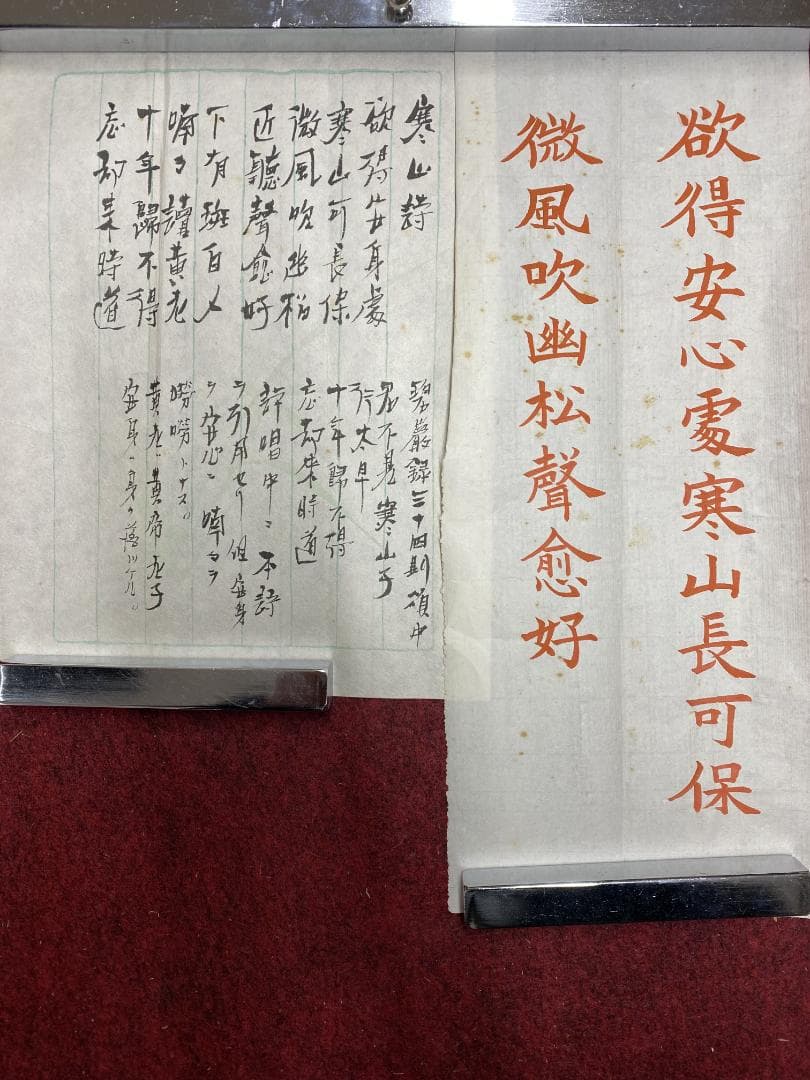 欲得安心處寒山長可保
微風吹幽松聲愈好
寒山詩
欲得安身處
寒山可長保
微風吹幽松
近聽聲愈好
下有斑白人
喃々讀黄老
十年歸不得
忘却来時道
碧巖録三十四則頌中
君不見寒山子
行太早
十年歸不得
忘却来時道
評唱中ニ本詩
ヲ引用セリ但安身
ヲ安心ニ喃々ヲ
嘮嘮トナス。
黄老ハ黄帝老子
安身ハ身ヲ落ツケル。